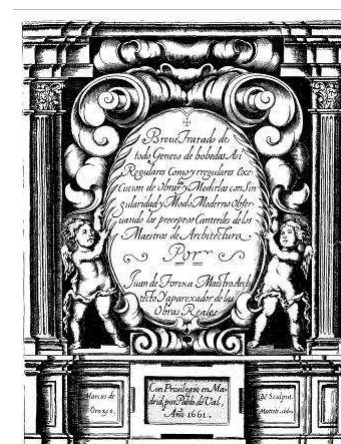 Breue Tratado de
todo Genero de bobedas Asi
Regulares Como yrregulares Exe-
Cucion de Obrar y Medirlas con Sin
gularidad y Modo Moderno Obser-
uando los preceptos Canteriles de los
Maestros de Architectura
Por
Juan de Torixa Maestro Archi
tecto Y aparexador de las
Obras Reales
Con Preuilegio en Ma-
drid por Pablo de Val.
Año 1661.
Marcus de
Orozco.
Sculpsit.